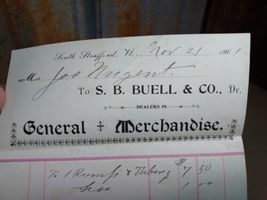 South Strafford, Vt., Nov 21 1901
M Joe Nugent.
To S. B. BUELL & CO., Dr.
DEALERS IN
General Merchandise.
To 1 Pump & Tubing $7 50